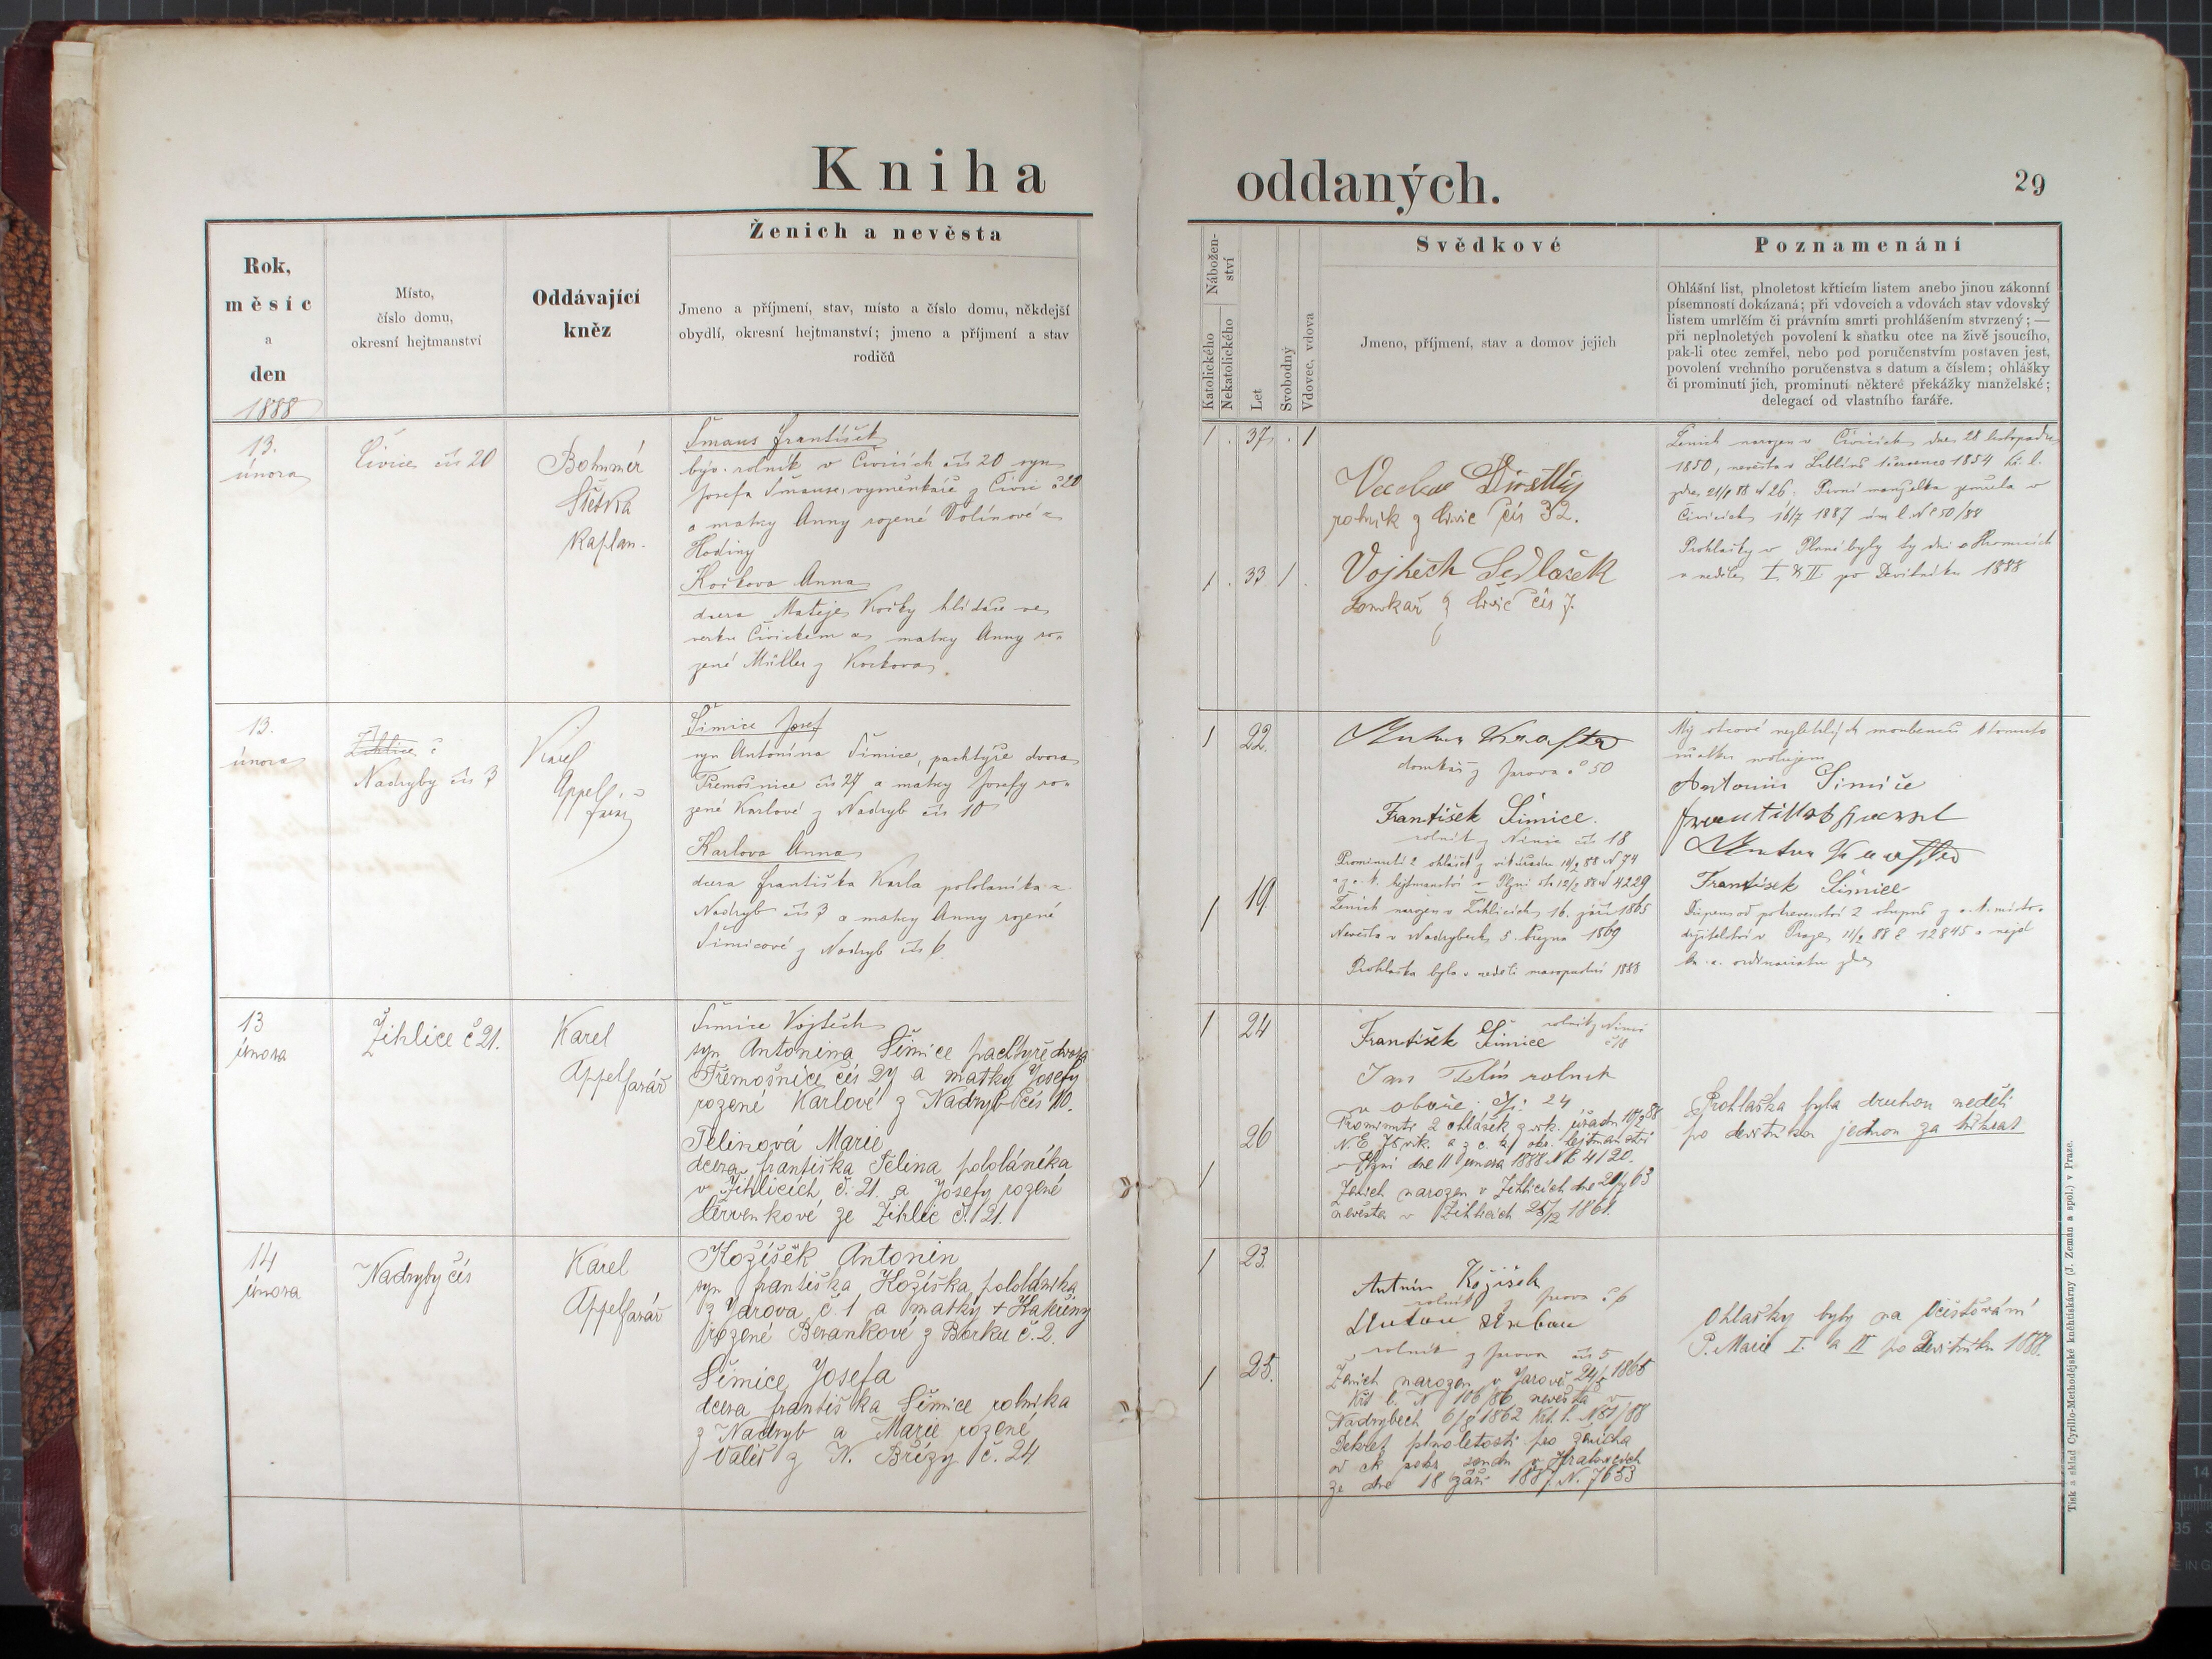 Kniha
oddaných.
29
Rok,
měsíc
a
den
1888
Místo,
číslo domu,
okresní hejtmanství
Oddávající
kněz
Ženich a nevěsta
Jmeno a příjmení, stav, místo a číslo domu, někdejší
obydlí, okresní hejtmanství; jmeno a příjmení a stav
rodičů
Nábožen-
ství
Katolického
Nekatolického
Let
Svobodný
Vdovec, vdova
Svědkové
Jmeno, příjmení, stav a domov jejich
Poznamenání
Ohlášní list, plnoletost křticím listem anebo jinou zákonní
písemností dokázaná; při vdovcích a vdovách stav vdovský
listem umrlčím či právním smrti prohlášením stvrzený; —
při neplnoletých povolení k sňatku otce na živě jsoucího,
pak-li otec zemřel, nebo pod poručenstvím postaven jest,
povolení vrchního poručenstva s datum a číslem; ohlášky
či prominutí jich, prominutí některé překážky manželské;
delegací od vlastního faráře.
13.
února
Čivice čís 20
Bohumír
Štětka
Kaplan.
Šmaus František
býv. rolník v Čivicích čís 20 syn
Josefa Šmause, výměnkáře z Čivic č 20
a matky Anny rozené Volínové z
Hodiny
Kočkova Anna
dcera Matěje Kočky hlídače ve
verku Čivickém a matky Anny ro-
zené Müller z
1 . 37 . 1
1 . 33 1 .
rolník z Čivic čís 32.
Vojtěch Sedláček
domkař z Čivic čís 7.
Ženich narozen v Čivicích dne 28 listopadu
1850, nevěsta v Liblíně 1 července 1854 kř. l.
zdes 21/1 88 N 26. První manželka zemřela v
Čivicích 16/7 1887 úm l. N 50/88
Prohlášky v Plané byly ty dni o Hromicích
a neděle I. & II po Devítníku 1888
13.
února
Žihlice č
Nadryby čís 3
Karel
Appel,
farář
Šimice Josef
syn Antonína Šimice, pachtýře dvora
Třemošnice čís 27 a matky Josefy ro-
zené Karlové z Nadryb čís 10
Karlova Anna
dcera Františka Karla pololaníka z
Nadryb čís 3 a matky Anny rozené
Šimicové z Nadryb čís 6.
1 22.
1 19.
domkář z Jarova č 50
František Šimice.
rolník z Nimic čís 18
Prominutí 2 ohlášek z vik úřadu 10/2 88 N 74
a z c. k. hejtmanství v Plzni dto 12/2 88 N 4229
Ženich narozen v Žihlicích 16. září 1865
Nevěsta v Nadrybech 5. března 1869
Prohláška byla v neděli masopustní 1888
My otcové nezletilých snoubenců k tomuto
sňatku svolujem
Antonín Šimice
František Šimice
Dispens od pokrevenství 2 stupně z c. k. místo-
držitelství v Praze 11/2 88 č 12845 a nejd
kn. a. ordinariatu zdes
13
února
Žihlice č 21.
Karel
Appel farář
Šimice Vojtěch
syn Antonina Šimice pachtýře dvora
Třemošnice čís 27 a matky Josefy
rozené Karlové z Nadryb čís 10.
Telinová Marie
dcera františka Telina pololáníka
v Žihlicích č. 21. a Josefy rozené
Červenkové ze Žihlic č. 21.
1 24
1 26
František Šimice rolník z Nimic
č 18
Jan Telín rolník
v oboře čp: 24
Prominutí 2 ohlášek z vik. úřadu 10/2 88
N. E. 75 vik. a z c. k. okr. hejtmanství
v Plzni dne 11 února 1888 N E 4120.
Ženich narozen v Žihlicích dne 63
nevěsta v Žihlicích 25/12 1861.
Prohláška byla druhou neděli
po devítníku jednou za třikrát
14
února
Nadryby čís
Karel
Appel farář
Kožíšek Antonin
syn františka Kožíška pololáníka
z Jarova č. 1 a matky + Kateřiny
rozené Berankové z Borku č. 2.
Šimice Josefa
dcera františka Šimice rolníka
z Nadryb a Marie rozené
Valeš z N. Břízy č. 24
1 23.
1 25.
Antonín Kožíšek
rolník z Jarova č 6
Anton Urban
rolník z Jarova čís 5
Ženich narozen v Jarově 24/5 1865
Kř. l. N 106/86 nevěsta v
Nadrybech 6/8 1862 Kř. l. N 81/88
Dekret plnoletosti pro ženicha
od ck okr. soudu v Kralovicích
ze dne 18 září 1887 N. 7653
Ohlášky byly na Očišťování
P. Marie I. a II po Devítníku 1888.
Tisk a sklad Cyrillo-Methodějské knihtiskárny (J. Zeman a spol.) v Praze.